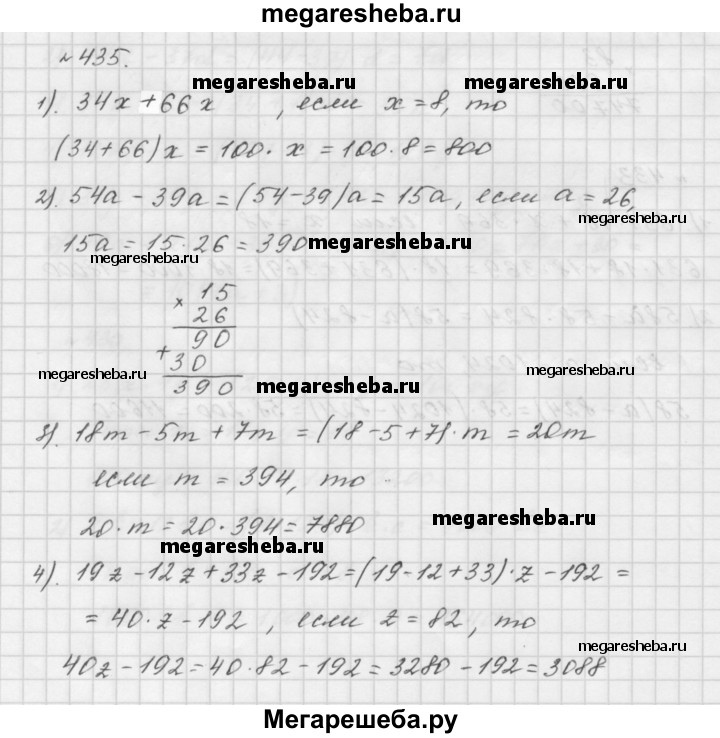 megaresheba.ru
№ 435.
megaresheba.ru megaresheba.ru
1). 34x + 66x , если x = 8, то
(34+66)x = 100 · x = 100 · 8 = 800
2). 54a - 39a = (54-39)a = 15a, если a = 26,
megaresheba.ru
15a = 15 · 26 = 390 megaresheba.ru
megaresheba.ru
× 15
26
90
+ 30
megaresheba.ru 390 megaresheba.ru megaresheba.ru
3). 18m - 5m + 7m = (18 - 5 + 7) · m = 20m
если m = 394, то
20 · m = 20 · 394 = 7880 megaresheba.ru
megaresheba.ru
4). 19z - 12z + 33z - 192 = (19-12+33) · z - 192 =
= 40 · z - 192 , если z = 82, то
megaresheba.ru
40z - 192 = 40 · 82 - 192 = 3280 - 192 = 3088
Мегарешеба.ру